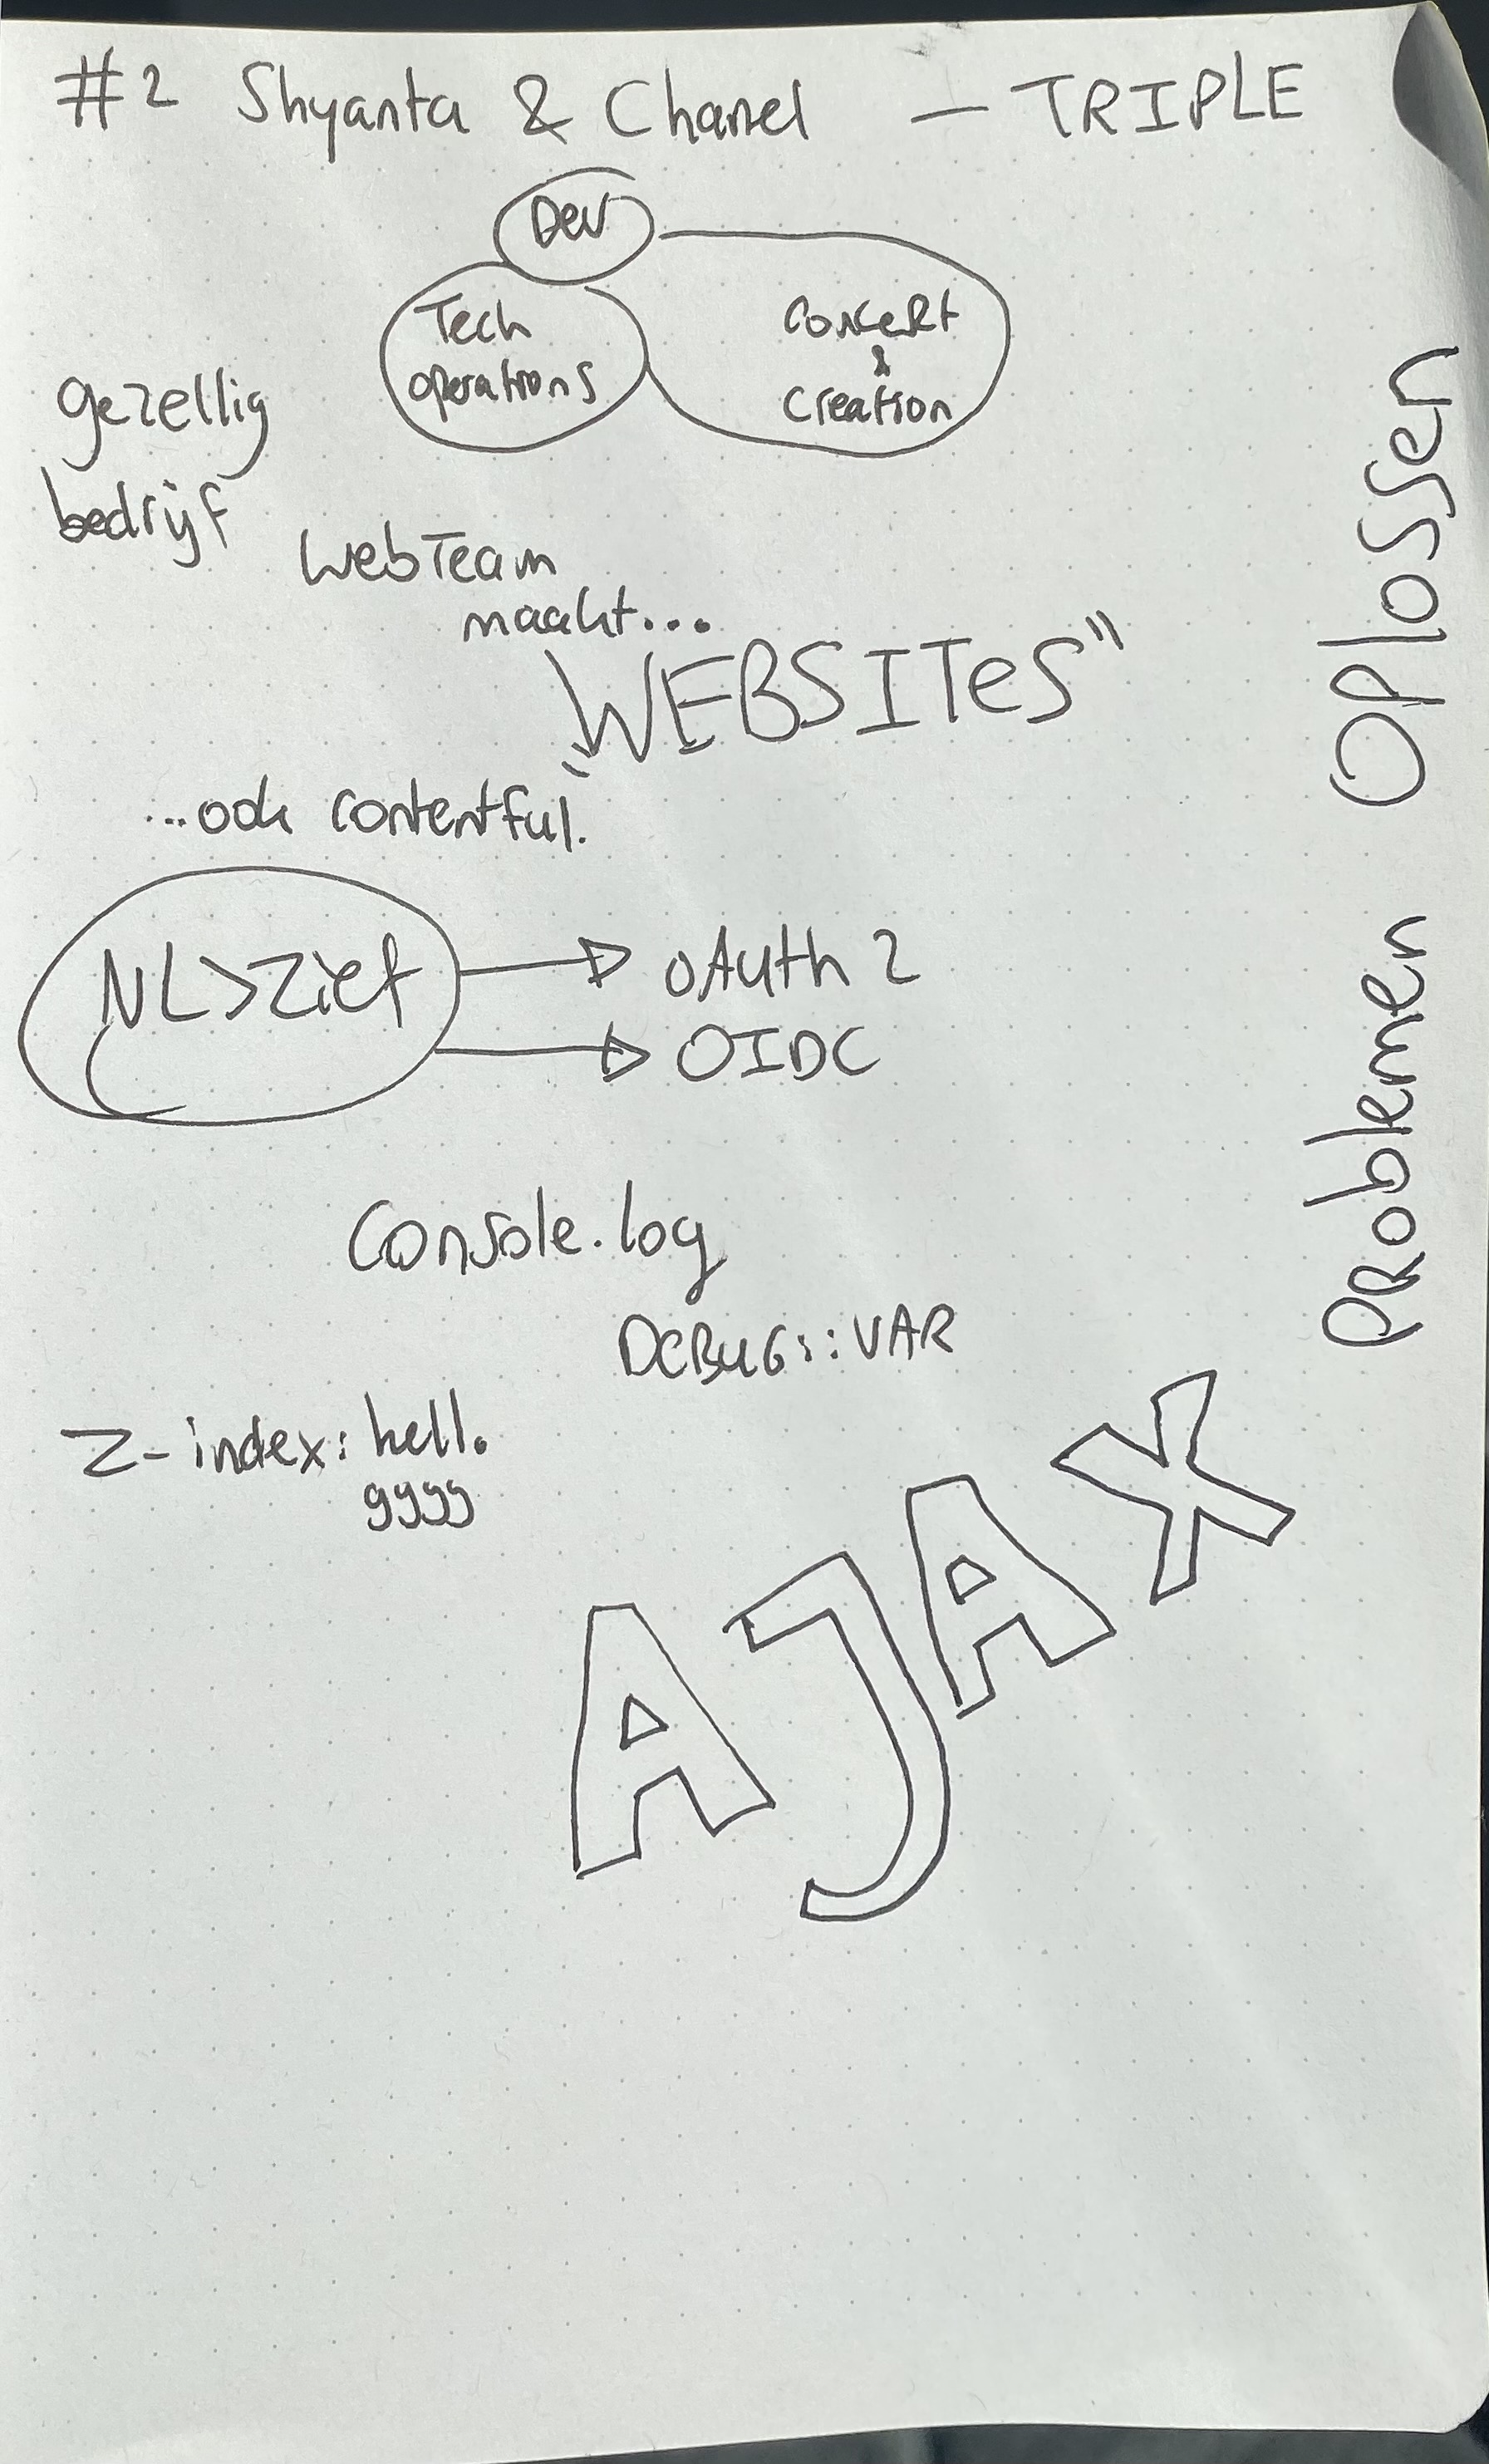 #2 Shyanta & Chanel — TRIPLE
Dev
Tech
operations
Concept
&
Creation
gezellig
bedrijf
WebTeam
maakt...
"WEBSITeS"
...ook contentful.
NL>Ziet
oAuth 2
OIDC
Console.log
DEBUG::VAR
Z-index: hell.
9999
AJAX
PRoblemen Oplossen